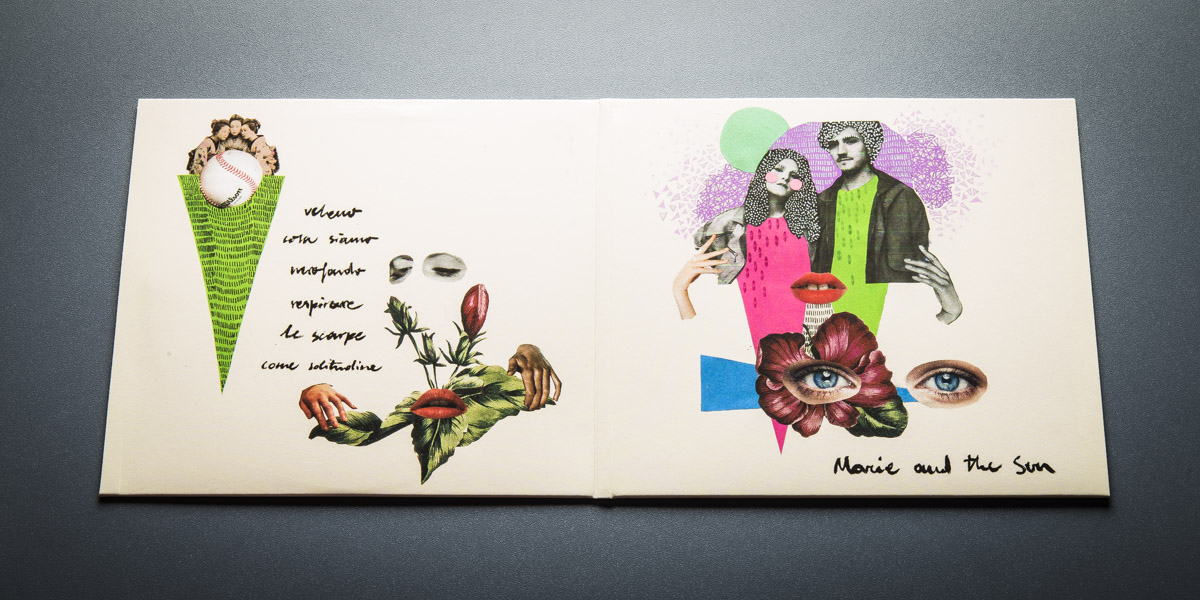 veleno
cosa siamo
profondo
respirare
le scarpe
come solitudine
Marie and the Sun